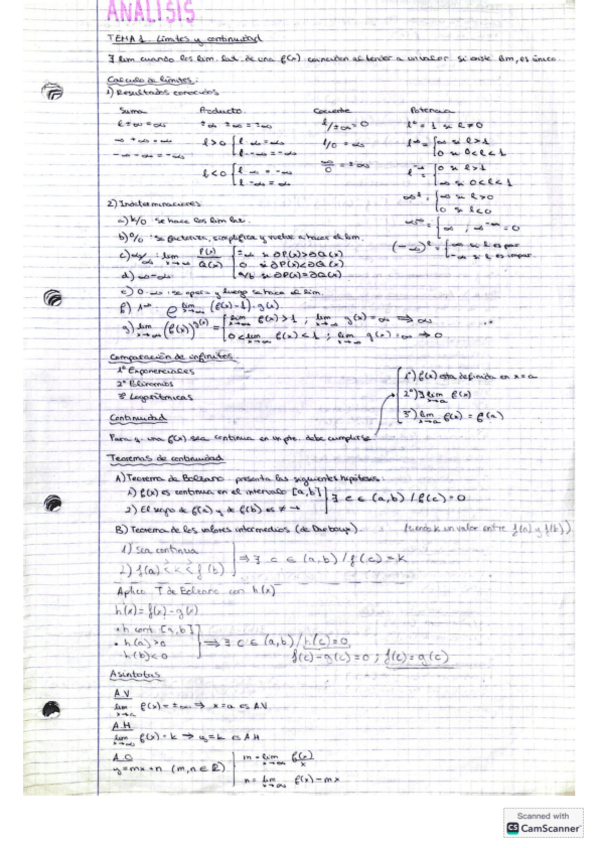 ANÁLISIS
TEMA 1. Límites y continuidad
∃ lim cuando los lim. lat. de una f(x) coinciden al tender a un valor. si existe lim, es único.
Calculo de límites:
1) Resultados conocidos
Suma Producto Cociente Potencia
l ± ∞ = ∞ ±∞ · ±∞ = ±∞ l/±∞ = 0 l⁰ = 1 si l ≠ 0
∞ + ∞ = ∞ l > 0 { l · ∞ = ∞ l/0 = ∞ l^∞ = { ∞ si l > 1
-∞ - ∞ = -∞ l · -∞ = -∞ 0 si 0 < l < 1
l < 0 { l · ∞ = -∞ ∞/0 = ±∞ l^-∞ = { 0 si l > 1
l · -∞ = ∞ ∞ si 0 < l < 1
∞^l = { ∞ si l > 0
0 si l < 0
2) Indeterminaciones
a) k/0 se hace los lim lat.
b) 0/0 se factoriza, simplifica y vuelve a hacer el lim.
(-∞)^l = { ∞ si l es par
-∞ si l es impar
c) ∞/∞ lim x→∞ P(x)/Q(x) { ±∞ si ∂P(x)>∂Q(x)
0 si ∂P(x)<∂Q(x)
a/b si ∂P(x)=∂Q(x)
d) ∞-∞
e) 0·∞ : se opera y luego se hace el lim.
f) 1^∞ e^lim x→∞ (f(x)-1)·g(x)
g) lim x→∞ (f(x))^g(x) = { lim x→∞ f(x) > 1 ; lim x→∞ g(x) = ∞ ⇒ ∞
0 < lim x→∞ f(x) < 1 ; lim x→∞ g(x) = ∞ → 0
Comparación de infinitos
1º Exponenciales
2º Polinomios
3º Logarítmicas
1º) f(x) esta definida en x=a
2º) ∃ lim x→a f(x)
3º) lim x→a f(x) = f(a)
Continuidad
Para q. una f(x) sea continua en un pto. debe cumplirse
Teoremas de continuidad
A) Teorema de Bolzano presenta las siguientes hipótesis:
1) f(x) es continua en el intervalo [a,b] } ∃ c ∈ (a,b) / f(c) = 0
2) El signo de f(a) y de f(b) es ≠ →
B) Teorema de los valores intermedios (de Darboux). (siendo k un valor entre f(a) y f(b))
1) sea continua ⇒ ∃ c ∈ (a,b) / f(c) = k
2) f(a) < k < f(b)
Aplico T de Bolzano con h(x)
h(x) = f(x) - g(x)
• h cont. [a,b]
• h(a) > 0 ⇒ ∃ c ∈ (a,b) / h(c) = 0
h(b) < 0 f(c) - g(c) = 0 ; f(c) = g(c)
Asíntotas
A.V
lim x→a f(x) = ±∞ ⇒ x=a es A.V
A.H
lim x→∞ f(x) = k → y=k es A.H
A.O m = lim x→∞ f(x)/x
y=mx+n (m,n ∈ ℝ)
n = lim x→∞ f(x) - mx
Scanned with
CS CamScanner